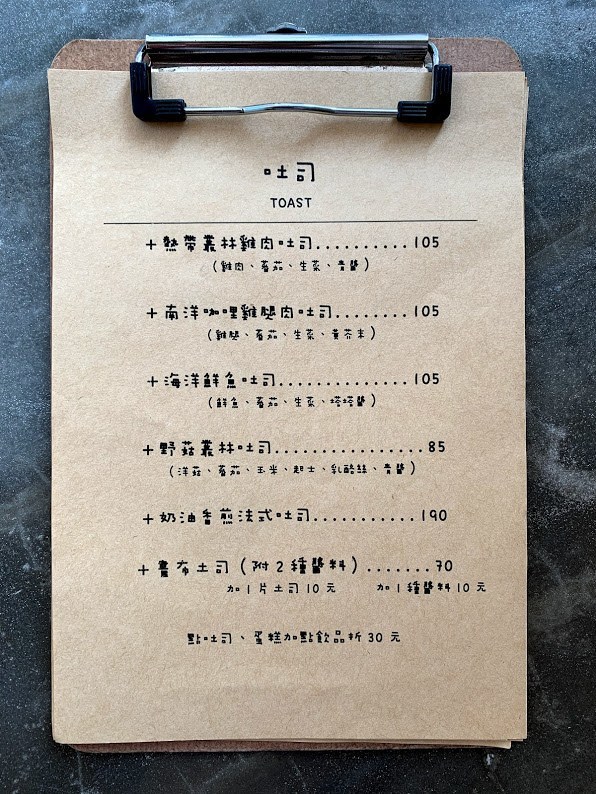 吐司
TOAST
+熱帶叢林雞肉吐司..........105
(雞肉、蕃茄、生菜、青醬)
+南洋咖哩雞腿肉吐司........105
(雞腿、蕃茄、生菜、黃芥末)
+海洋鮮魚吐司..............105
(鮮魚、蕃茄、生菜、塔塔醬)
+野菇叢林吐司................85
(洋菇、蕃茄、玉米、起士、乳酪絲、青醬)
+奶油香煎法式吐司...........190
+畫布土司(附2種醬料).......70
加1片土司10元 加1種醬料10元
點吐司、蛋糕加點飲品折30元